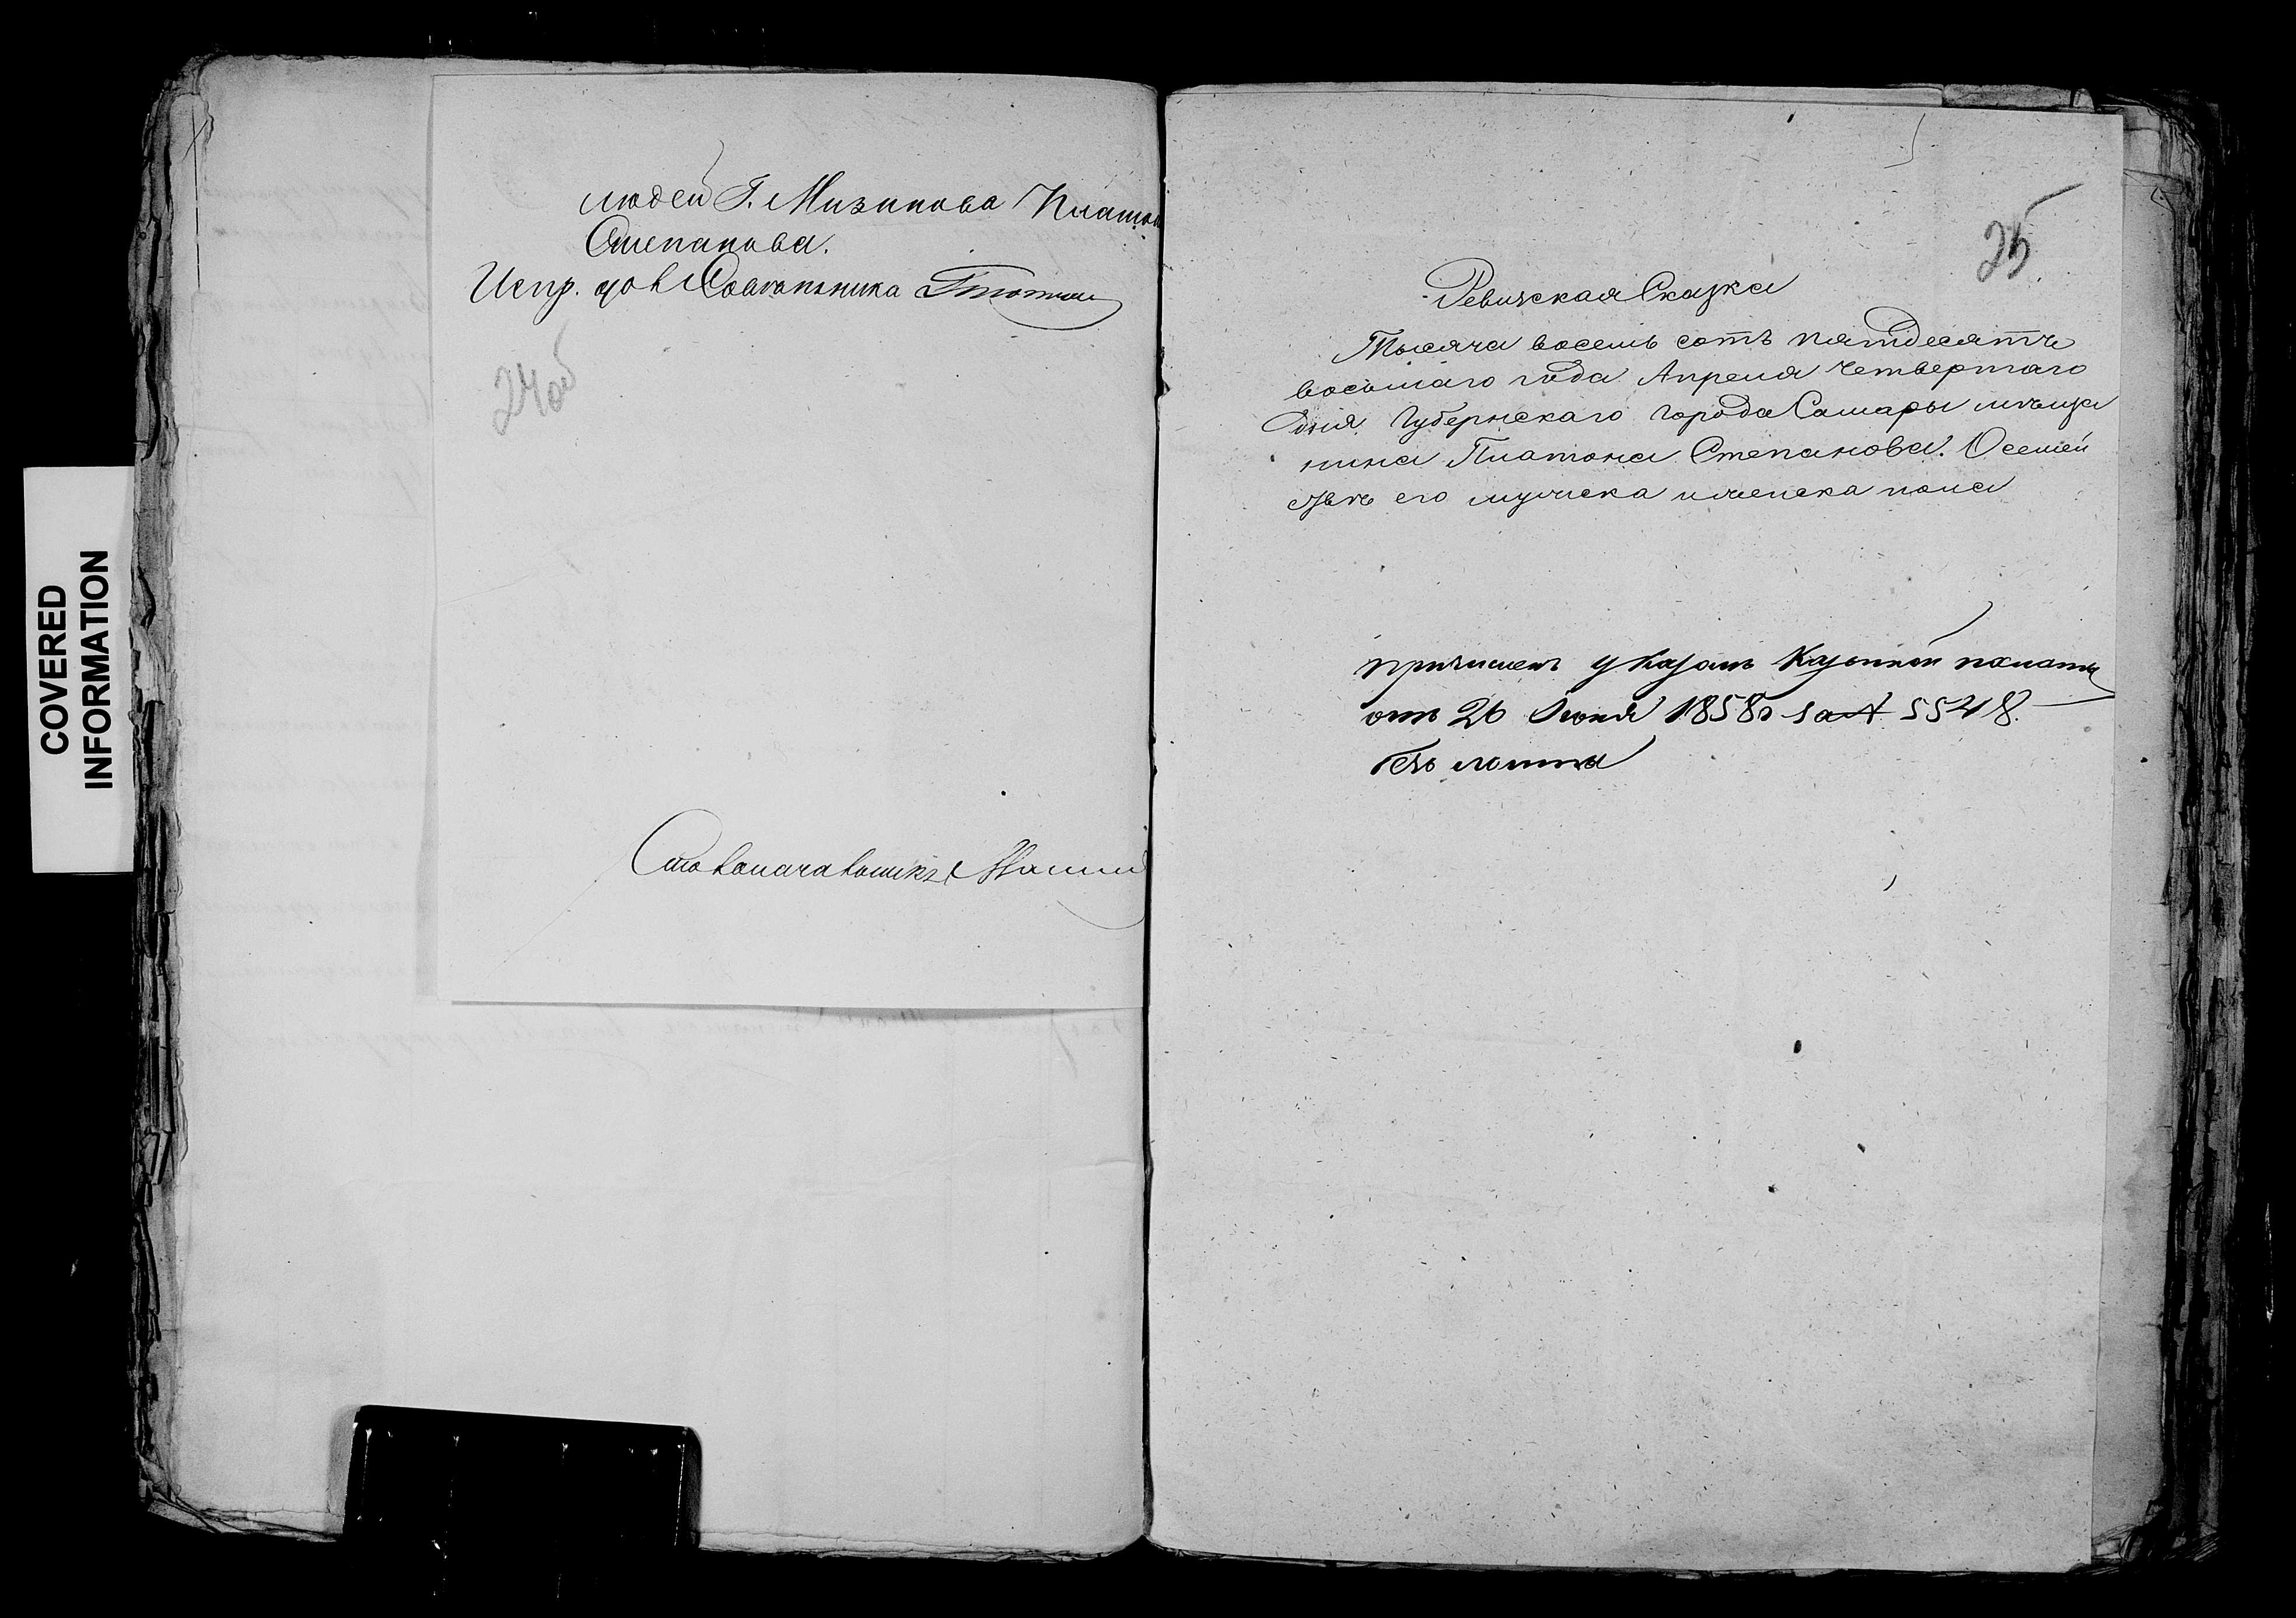 людей Г. Мизинова Платон
Степанова.
Испр. дол
24об
Столоначальникъ
COVERED
INFORMATION
25
Ревижская Сказка
Тысяча восемь сотъ пятдесятъ
восьмаго года Апреля четвертаго
дня Губернскаго города Самары мѣща
нина Платона Степанова. О семей
ствѣ его мужска и женска пола
причислен указом Казенной палаты
отъ 26 Июня 1858г за № 5548.
безъ льготы